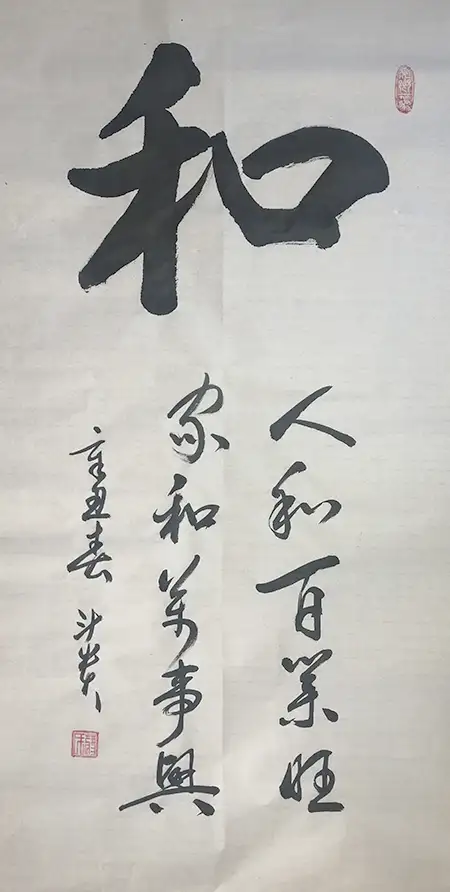 和
人和百業旺
家和萬事興
辛丑春 斗貴